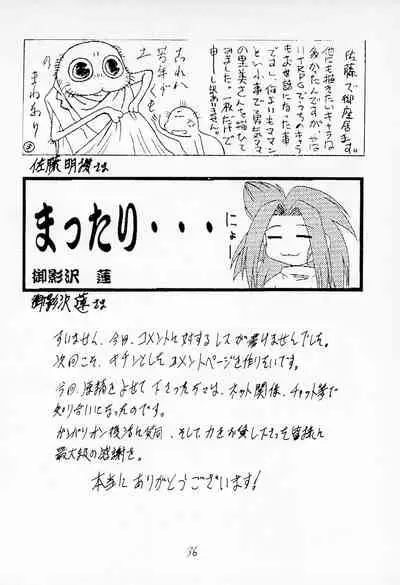 佐藤で御座居ます。
他にも描きたいキャラは
多かたんですが、☆は
TRPGでうちのキャラ
もお世話になった事
ですし、何よりもママン
という事で勇気ママ
の里美さんを描いて
みました。一枚だけで
申し訳ありません。
これは
若年が
まわあり
佐藤明機さま
まったり・・・
にょー
御影沢 蓮
御影沢 蓮さま
すいません、今回、コメントに対するレスが書けませんでした。
次回こそ、キチンとしたコメントページを作りたいです。
今回、原稿をよせて下さった方々は、ネット関係、チャット等で
知り合いになったのです。
がんがりオン復活に賛同、そして力をお貸し下さった皆様に
最大級の感謝を。
本当にありがとうございます!
36